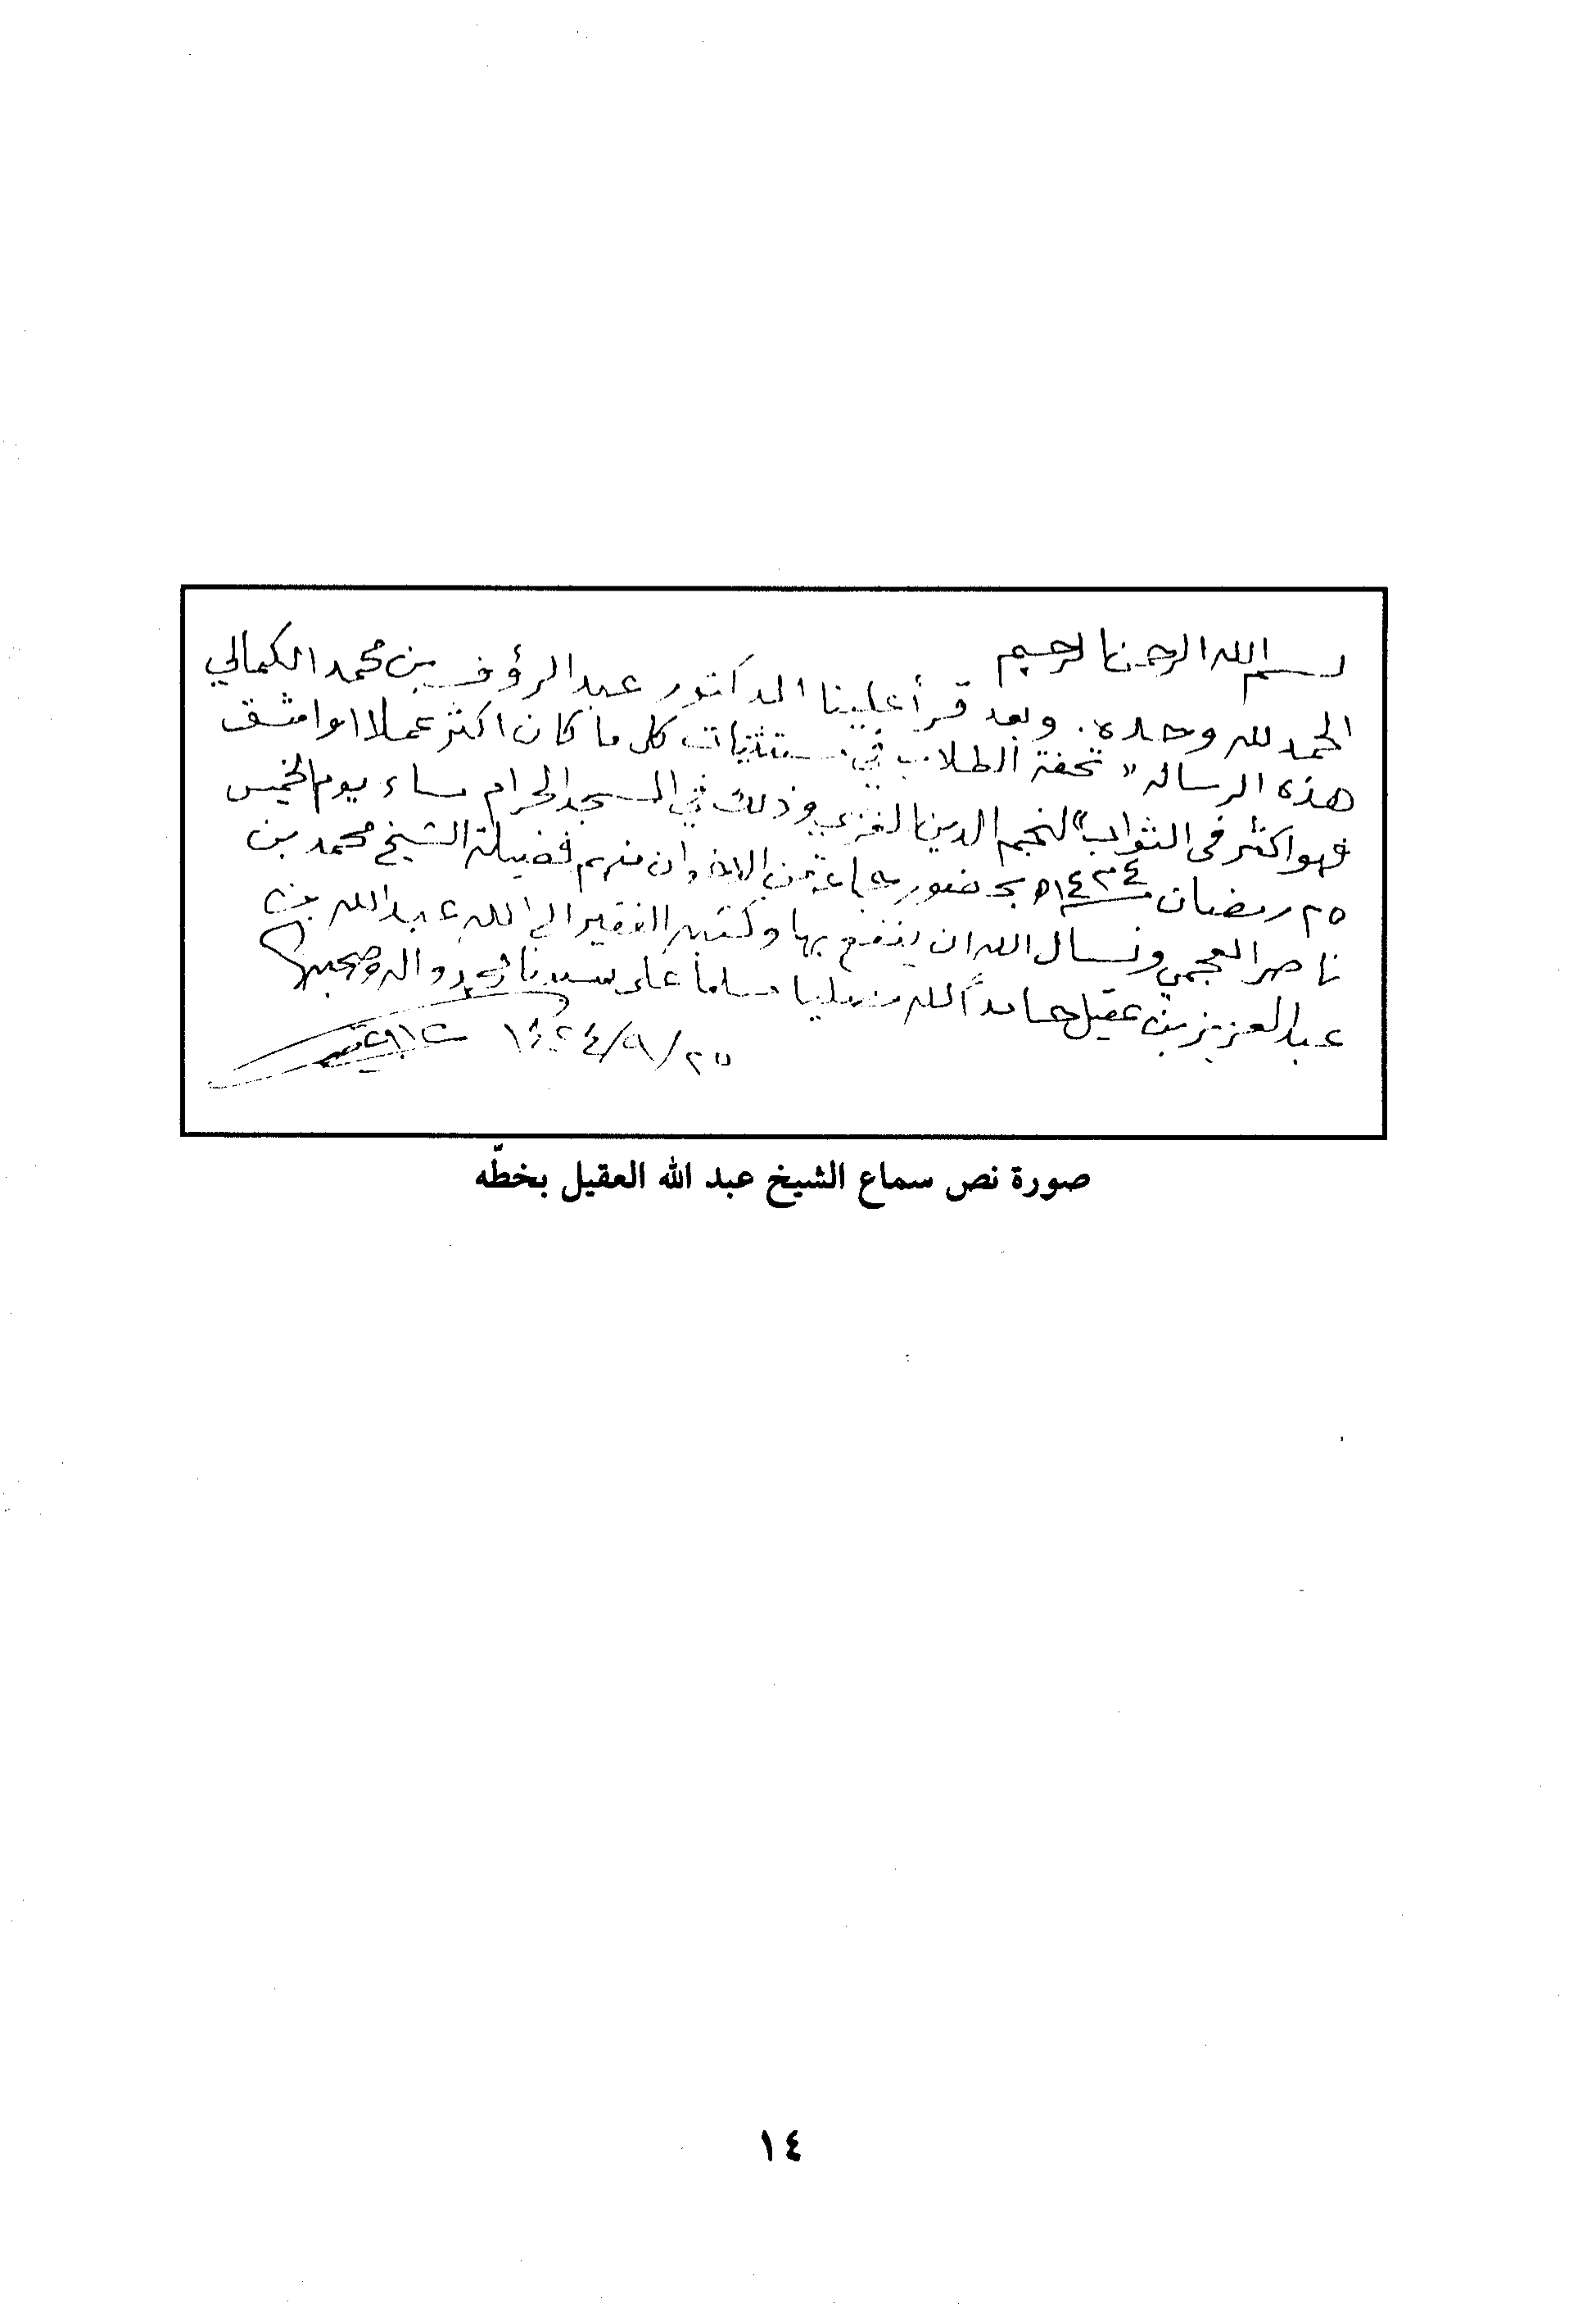 بسم الله الرحمن الرحيم
الحمد لله وحده. وبعد قرأ علينا الدكتور عبد الرؤوف بن محمد الكمالي
هذه الرسالة «تحفة الطلاب في مستثنيات كل ما كان اكثر عملا او اشق
فهو اكثر في الثواب» لنجم الدين الغزي وذلك في المسجد الحرام مساء يوم الخميس
٢٥ رمضان ١٤٢٤هـ بحضور جماعة من الاخوان منهم فضيلة الشيخ محمد بن
ناصر العجمي ونسال الله ان ينفع بها وكتبه الفقير الى الله عبد الله بن
عبد العزيز بن عقيل حامداً لله مصليا مسلماً على سيدنا محمد واله وصحبه
٢٥/٩/١٤٢٤
صورة نص سماع الشيخ عبد الله العقيل بخطّه
١٤